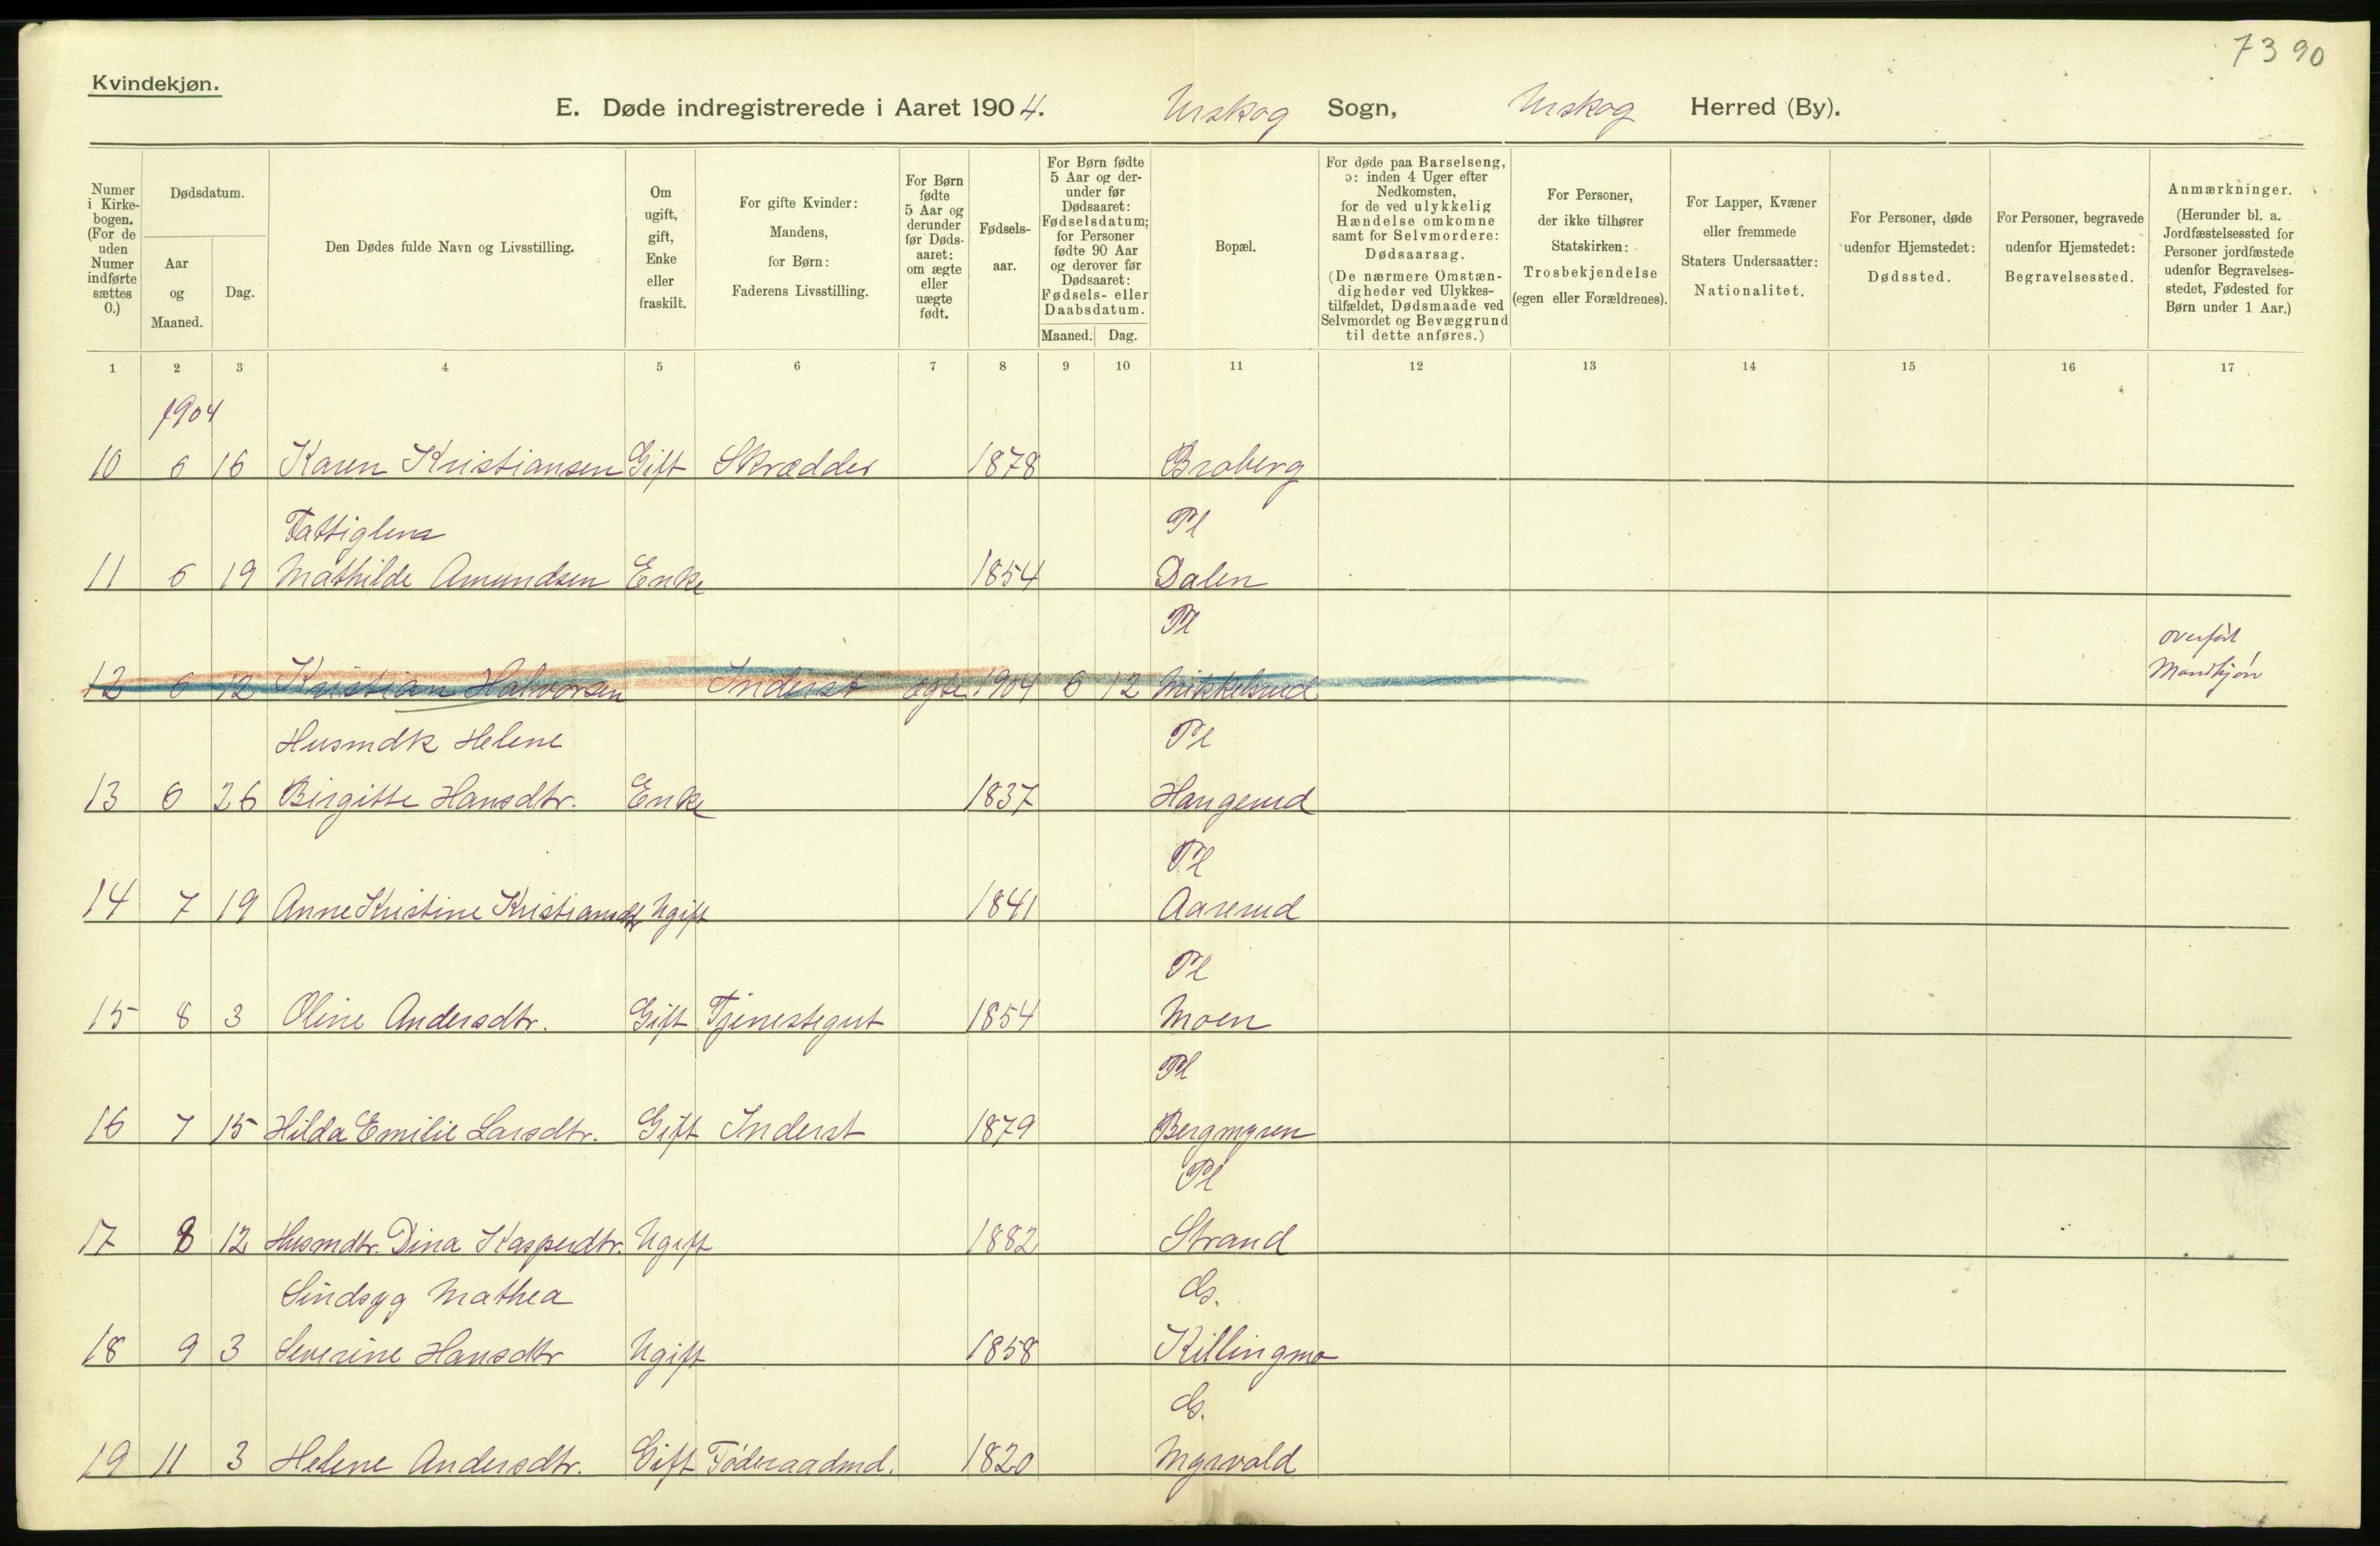 7390
Kvindekjøn.
E. Døde indregistrerede i Aaret 1904. Urskog Sogn, Urskog Herred (By).
Numer i Kirkebogen. (For de uden Numer indførte sættes 0.)
Dødsdatum.
Aar og Maaned.
Dag.
Den Dødes fulde Navn og Livsstilling.
Om ugift, gift, Enke eller fraskilt.
For gifte Kvinder: Mandens, for Børn: Faderens Livsstilling.
For Børn fødte 5 Aar og derunder før Dødsaaret: om ægte eller uægte født.
Fødselsaar.
For Børn fødte 5 Aar og derunder før Dødsaaret: Fødselsdatum; for Personer fødte 90 Aar og derover før Dødsaaret: Fødsels- eller Daabsdatum.
Maaned. Dag.
Bopæl.
For døde paa Barselseng, ɔ: inden 4 Uger efter Nedkomsten, for de ved ulykkelig Hændelse omkomne samt for Selvmordere: Dødsaarsag.
(De nærmere Omstændigheder ved Ulykkestilfældet, Dødsmaade ved Selvmordet og Bevæggrund til dette anføres.)
For Personer, der ikke tilhører Statskirken: Trosbekjendelse (egen eller Forældrenes).
For Lapper, Kvæner eller fremmede Staters Undersaatter: Nationalitet.
For Personer, døde udenfor Hjemstedet: Dødssted.
For Personer, begravede udenfor Hjemstedet: Begravelsessted.
Anmærkninger.
(Herunder bl. a. Jordfæstelsessted for Personer jordfæstede udenfor Begravelsesstedet, Fødested for Børn under 1 Aar.)
1 2 3 4 5 6 7 8 9 10 11 12 13 14 15 16 17
1904
10 6 16 Karen Kristiansen Gift Skrædder 1878 Braberg
Fattiglem Pl
11 6 19 Mathilde Amundsen Enke 1854 Dalen
Pl overført
12 6 12 Kristian Halvorsen Inderst ægte 1904 6 12 Mikkelsrud Mandkjøn
Husmdk Helene Pl
13 6 26 Birgitte Hansdtr. Enke 1837 Haugerud
Pl
14 7 19 Anne Kristine Kristiansdtr Ugift 1841 Aarerud
Pl
15 8 3 Oline Andersdtr. Gift Tjenestegut 1854 Moen
Pl
16 7 15 Hilda Emilie Larsdtr. Gift Inderst 1879 Bergmyren
Pl
17 8 12 Husmdtr. Dina Kasperdtr. Ugift 1882 Strand
Sindsyg Mathea Gs.
18 9 3 Severine Hansdtr Ugift 1858 Killingmo
Gs.
19 11 3 Helene Andersdtr. Gift Føderaadmd. 1820 Myrvold